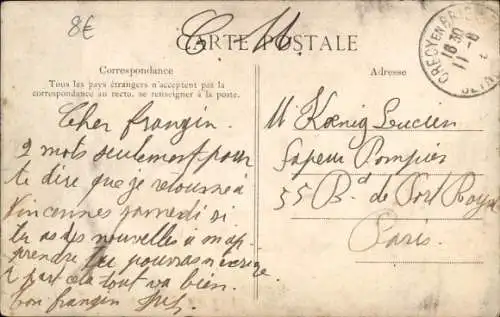 8€
C. M.
CARTE POSTALE
Correspondance
Tous les pays étrangers n'acceptent pas la
correspondance au recto, se renseigner à la poste.
Adresse
CRECY EN BRIE
18 30
11-8
Cher frangin.
2 mots seulement pour
te dire que je retourne à
Vincennes samedi si
tu as des nouvelles a m'ap
prendre tu pourras m'ecrire
a part cela tout va bien.
ton frangin
M Kœnig Lucien
Sapeur Pompier
55 Bd. de Port Royal
Paris.